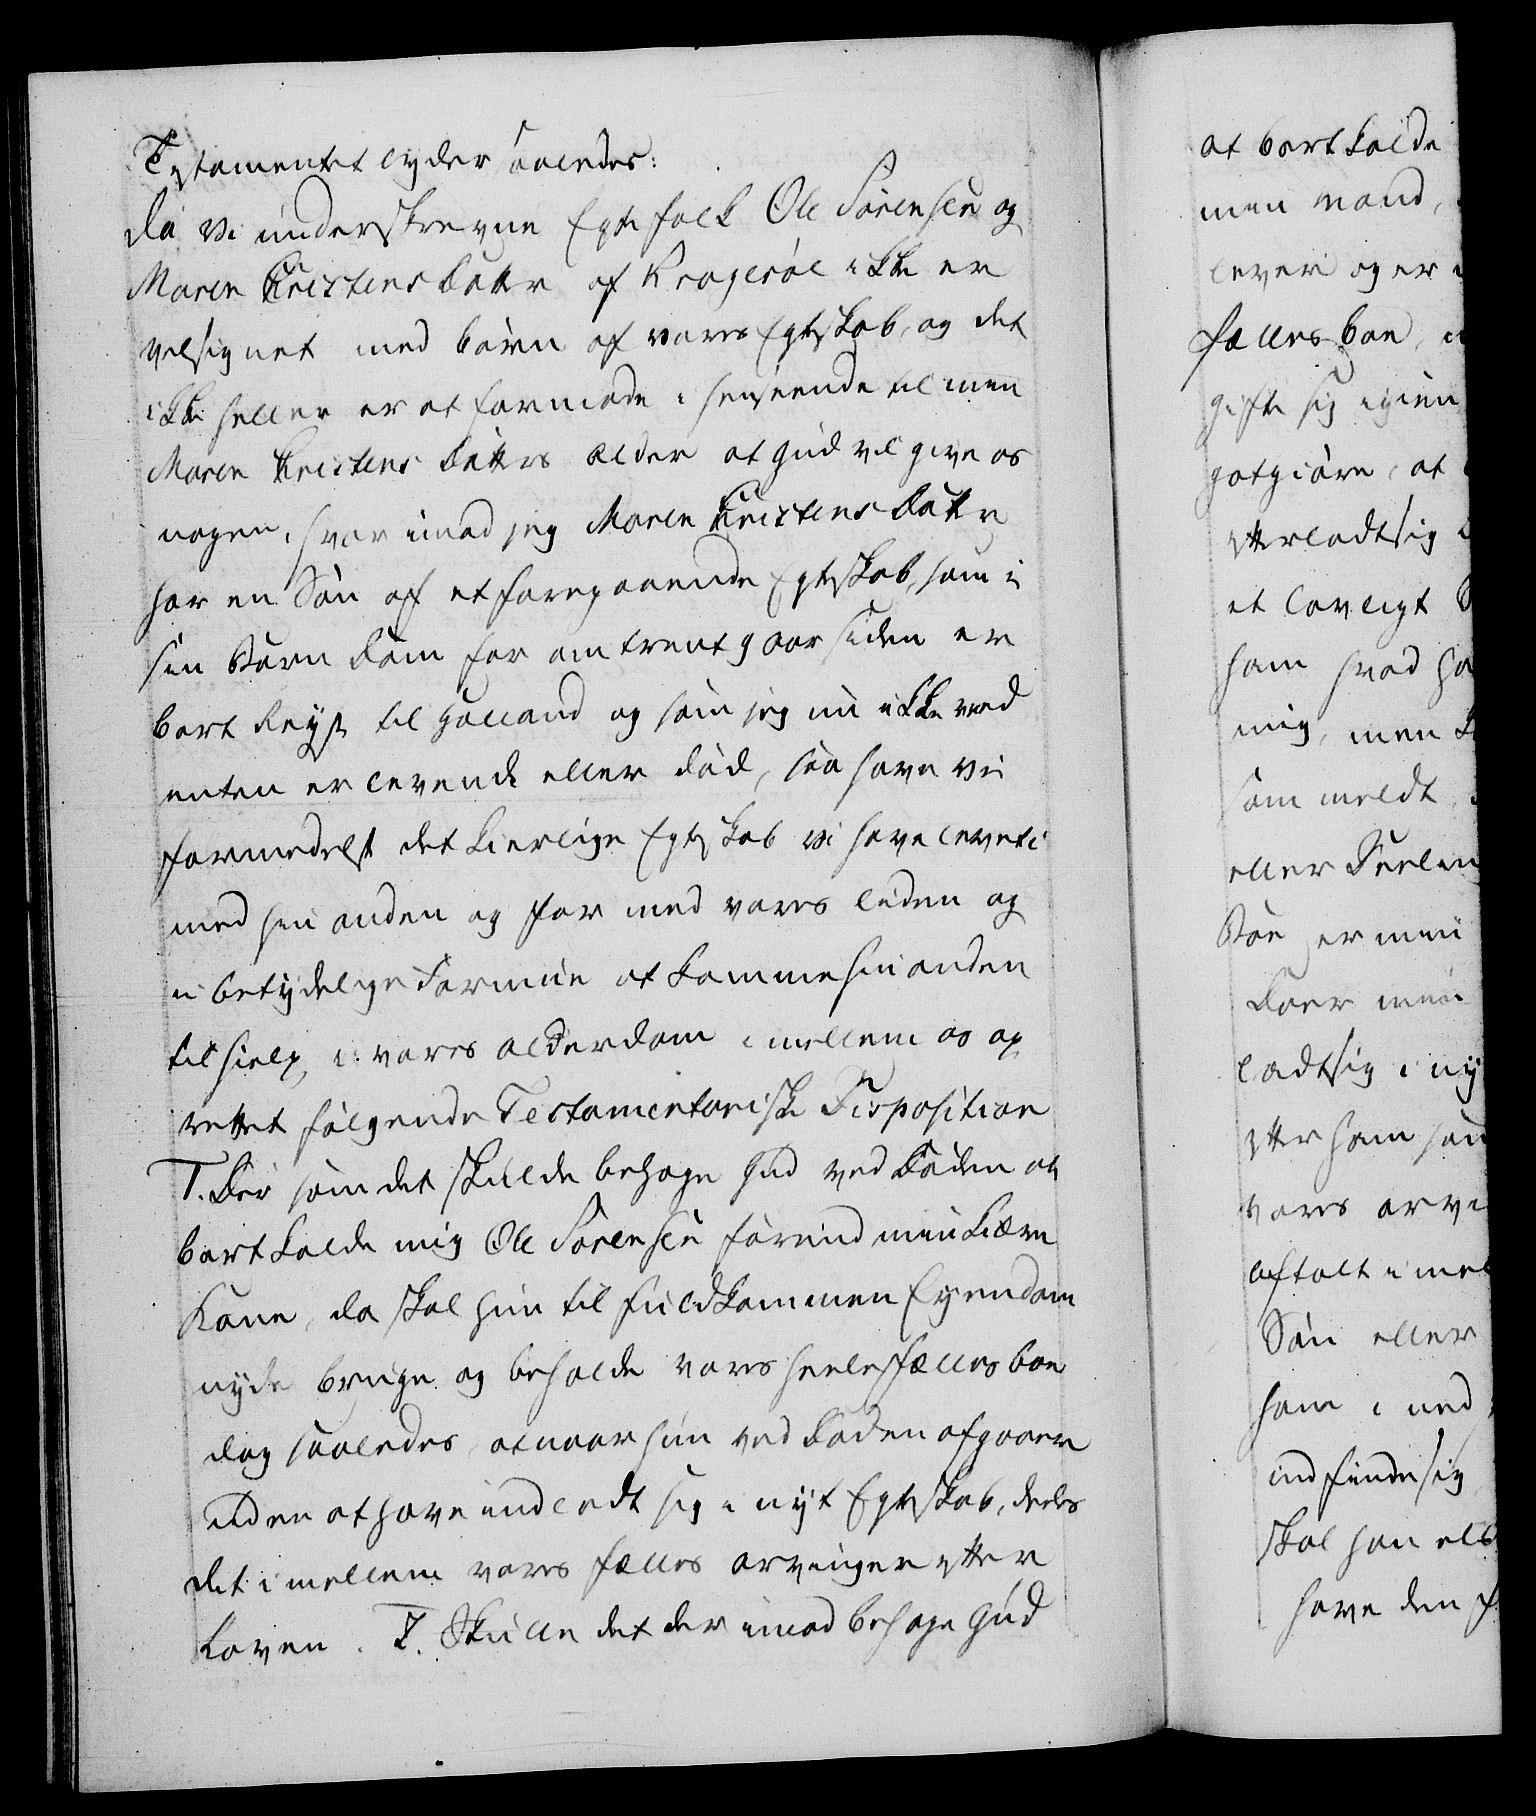 Testamentet lyder saaledes:
Da vi underskrevne Egtefolk Ole Sørensen og
Maren Kristens Datter af Kragerøe ikke er
velsignet med børn af vores Egteskab, og det
ikke heller er at formode i henseende til min
Maren Kristens Datters alder at Gud vil give os
nogen, hvorimod jeg Maren Kristens Datter
har en Søn af et foregaaende Egteskab, som i
sin Barndom for omtrent 9 aar siden er
bort Reyst til Holland og som jeg nu ikke veed
enten er levende eller død, saa have vi
formedelst det kierlige Egteskab vi have levet i
med hin anden og for med vores liden og
u betydelige Formue at komme hin anden
til hielp, i vores alderdom imellem os op
rettet følgende Testamentariske Disposition
1. Der som det skulde behage Gud ved Døden at
bort kalde mig Ole Sørensen førend min kiære
Kone, da skal hun til fuldkommen Eyendom
nyde bruge og beholde vores heele fælles boe
dog saaledes, at naar hun ved Døden afgaaer
uden at have indladt sig i nyt Egteskab, deeles
det imellem vores fælles arvinger efter
Loven. 2. Skulle det der imod behage Gud
at bort kalde
min mand,
lever og er
fælles boe,
gifte sig igien
godtgiøre, at
efterladt sig
et lovligt
ham hvad
mig, men
som meldt
eller
Boe er min
Doer min
ladt sig i ny
efter ham
vores arve
aftalt imel
Søn eller
ham i
indfinde sig
skal han
have den